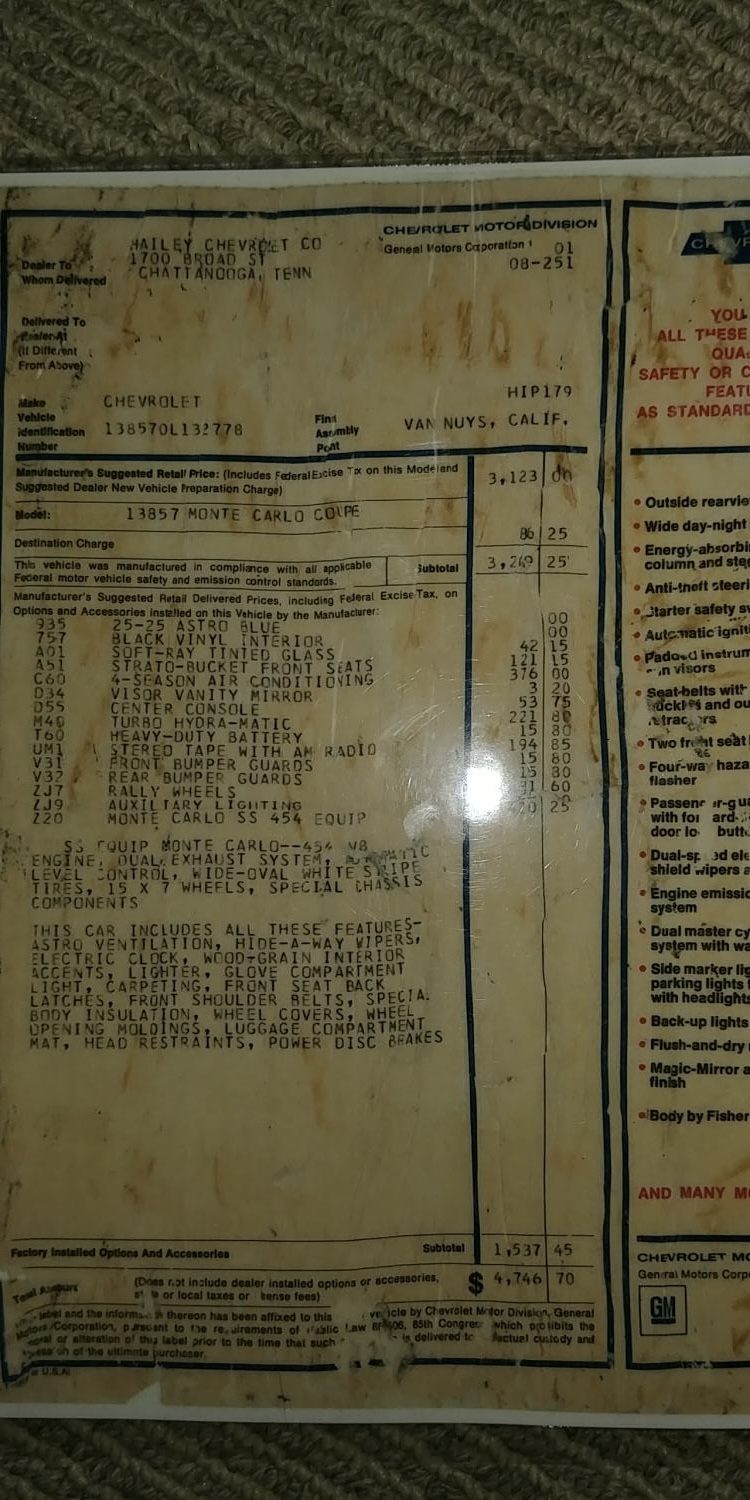 HAILEY CHEVROLET CO
1700 BROAD ST
CHATTANOOGA, TENN
Dealer To
Whom Delivered
CHEVROLET MOTOR DIVISION
General Motors Corporation
01
08-251
Delivered To
Dealer At
(If Different
From Above)
HIP179
Make CHEVROLET
Vehicle
Identification 138570L132778
Number
Final
Assembly VAN NUYS, CALIF.
Point
Manufacturer's Suggested Retail Price: (Includes Federal Excise Tax on this Model and 3,123 00
Suggested Dealer New Vehicle Preparation Charge)
Model: 13857 MONTE CARLO COUPE
Destination Charge 86 25
This vehicle was manufactured in compliance with all applicable
Federal motor vehicle safety and emission control standards.
Subtotal 3,209 25
Manufacturer's Suggested Retail Delivered Prices, including Federal Excise Tax, on
Options and Accessories installed on this Vehicle by the Manufacturer:
935 25-25 ASTRO BLUE 00
757 BLACK VINYL INTERIOR 00
A01 SOFT-RAY TINTED GLASS 42 15
A51 STRATO-BUCKET FRONT SEATS 121 15
C60 4-SEASON AIR CONDITIONING 376 00
D34 VISOR VANITY MIRROR 3 20
D55 CENTER CONSOLE 53 75
M40 TURBO HYDRA-MATIC 221 80
T60 HEAVY-DUTY BATTERY 15 80
UM1 STEREO TAPE WITH AM RADIO 194 85
V31 FRONT BUMPER GUARDS 15 80
V32 REAR BUMPER GUARDS 15 80
ZJ7 RALLY WHEELS 60
ZJ9 AUXILIARY LIGHTING
Z20 MONTE CARLO SS 454 EQUIP 420 25
SS EQUIP MONTE CARLO--454 V8
ENGINE, DUAL EXHAUST SYSTEM, AUTOMATIC
LEVEL CONTROL, WIDE-OVAL WHITE STRIPE
TIRES, 15 X 7 WHEELS, SPECIAL CHASSIS
COMPONENTS
THIS CAR INCLUDES ALL THESE FEATURES-
ASTRO VENTILATION, HIDE-A-WAY WIPERS,
ELECTRIC CLOCK, WOOD-GRAIN INTERIOR
ACCENTS, LIGHTER, GLOVE COMPARTMENT
LIGHT, CARPETING, FRONT SEAT BACK
LATCHES, FRONT SHOULDER BELTS, SPECIAL
BODY INSULATION, WHEEL COVERS, WHEEL
OPENING MOLDINGS, LUGGAGE COMPARTMENT
MAT, HEAD RESTRAINTS, POWER DISC BRAKES
Factory Installed Options And Accessories Subtotal 1,537 45
Total Amount (Does not include dealer installed options or accessories, $ 4,746 70
state or local taxes or license fees)
label and the information thereon has been affixed to this vehicle by Chevrolet Motor Division, General
Motors Corporation, pursuant to the requirements of Public Law 85-506, 85th Congress which prohibits the
removal or alteration of this label prior to the time that such is delivered to actual custody and
possession of the ultimate purchaser.
U.S.A.
YOU
ALL THESE
QUA
SAFETY OR C
FEATU
AS STANDARD
• Outside rearvie
• Wide day-night
• Energy-absorbi
column and stee
• Anti-theft steeri
• Starter safety s
• Automatic igniti
• Padded instrum
sun visors
• Seat belts with
buckles and ou
retractors
• Two front seat
• Four-way haza
flasher
• Passenger-gu
with forward-
door lo butt
• Dual-speed ele
shield wipers a
• Engine emissio
system
• Dual master cy
system with wa
• Side marker lig
parking lights
with headlights
• Back-up lights
• Flush-and-dry
• Magic-Mirror a
finish
• Body by Fisher
AND MANY MO
CHEVROLET MO
General Motors Corp
GM